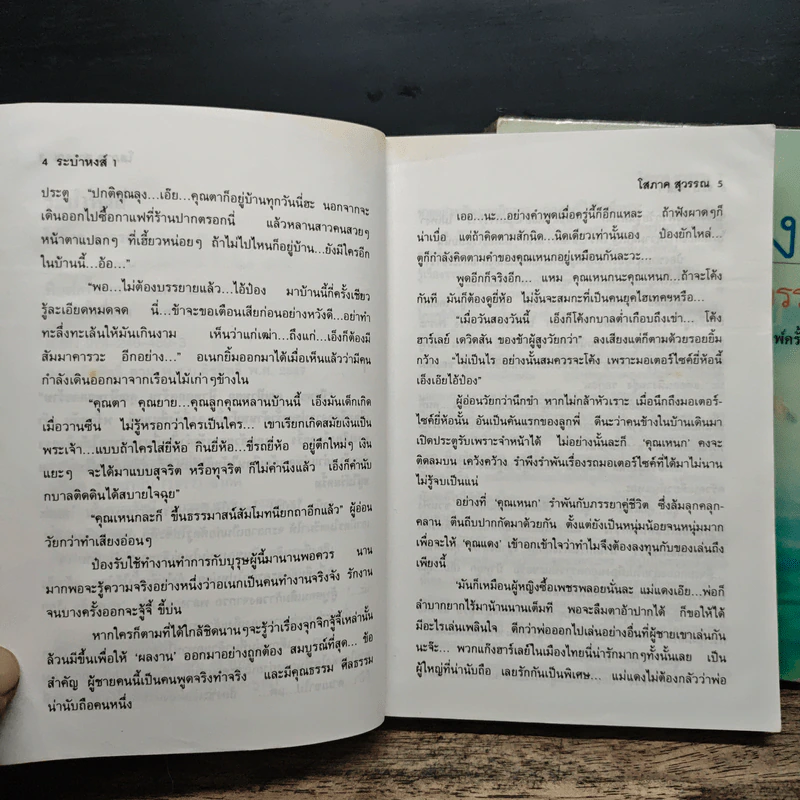 4 ระบำหงส์ 1
ประตู "ปกติคุณลุง...เอ๊ย...คุณตาก็อยู่บ้านทุกวันนี่ฮะ นอกจากจะ
เดินออกไปซื้อกาแฟที่ร้านปากตรอกนี่ แล้วหลานสาวคนสวยๆ
หน้าตาแปลกๆ ที่เฮี้ยวหน่อยๆ ถ้าไม่ไปไหนก็อยู่บ้าน...ยังมีใครอีก
ในบ้านนี้...อ้อ..."
"พอ...ไม่ต้องบรรยายแล้ว...ไอ้ป้อง มาบ้านนี้กี่ครั้งเชียว
รู้ละเอียดหมดจด นี่...ข้าจะขอเตือนเสียก่อนอย่างหวังดี...อย่าทำ
ทะลึ่งทะเล้นให้มันเกินงาม เห็นว่าแก่เฒ่า...ถึงแก่...เอ็งก็ต้องมี
สัมมาคารวะ อีกอย่าง..." อเนกยิ้มออกมาได้เมื่อเห็นแล้วว่ามีคน
กำลังเดินออกมาจากเรือนไม้เก่าๆข้างใน
"คุณตา คุณยาย...คุณลูกคุณหลานบ้านนี้ เอ็งมันเด็กเกิด
เมื่อวานซืน ไม่รู้หรอกว่าใครเป็นใคร... เขาเรียกเกิดสมัยเงินเป็น
พระเจ้า...แบบถ้าใครใส่ยี่ห้อ กินยี่ห้อ...ขี่รถยี่ห้อ อยู่ตึกใหม่ๆ เงิน
แยะๆ จะได้มาแบบสุจริต หรือทุจริต ก็ไม่คำนึงแล้ว เอ็งก็คำนับ
กบาลติดดินได้สบายใจฉุย"
"คุณเหนกละก็ ขึ้นธรรมาสน์สัมโมทนียกถาอีกแล้ว" ผู้อ่อน
วัยกว่าทำเสียงอ่อนๆ
ป้องรับใช้ทำงานทำการกับบุรุษผู้นี้มานานพอควร นาน
มากพอจะรู้ความจริงอย่างหนึ่งว่าอเนกเป็นคนทำงานจริงจัง รักงาน
จนบางครั้งออกจะจู้จี้ ขี้บ่น
หากใครก็ตามที่ได้ใกล้ชิดนานๆจะรู้ว่าเรื่องจุกจิกจู้จี้เหล่านั้น
ล้วนมีขึ้นเพื่อให้ 'ผลงาน' ออกมาอย่างถูกต้อง สมบูรณ์ที่สุด... ข้อ
สำคัญ ผู้ชายคนนี้เป็นคนพูดจริงทำจริง และมีคุณธรรม ศีลธรรม
น่านับถือคนหนึ่ง
โสภาค สุวรรณ 5
เออ...นะ...อย่างคำพูดเมื่อครู่นี้ก็อีกแหละ ถ้าฟังผาดๆก็
น่าเบื่อ แต่ถ้าคิดตามสักนิด...นิดเดียวเท่านั้นเอง ป้องยักไหล่...
ดูก็กำลังคิดตามคำของคุณเหนกอยู่เหมือนกันละวะ...
พูดอีกก็จริงอีก... แหม คุณเหนกนะคุณเหนก...ถ้าจะโค้ง
กันที มันก็ต้องดูยี่ห้อ ไม่งั้นจะสมกะที่เป็นคนยุคไฮเทคฯหรือ...
"เมื่อวันสองวันนี้ เอ็งก็โค้งกบาลต่ำเกือบถึงเข่า... โค้ง
ฮาร์เลย์ เดวิดสัน ของข้าผู้สูงวัยกว่า" ลงเสียงแต่ก็ตามด้วยรอยยิ้ม
กว้าง "ไม่เป็นไร อย่างนั้นสมควรจะโค้ง เพราะมอเตอร์ไซค์ยี่ห้อนี้
เอ็งเอียไอ้ป้อง"
ผู้อ่อนวัยกว่านึกขำ หากไม่กล้าหัวเราะ เมื่อนึกถึงมอเตอร์-
ไซค์ยี่ห้อนั้น อันเป็นคันแรกของลูกพี่ ดีนะว่าคนข้างในบ้านเดินมา
เปิดประตูรับเพราะจำหน้าได้ ไม่อย่างนั้นละก็ 'คุณเหนก' คงจะ
ติดลมบน เคว้งคว้าง รำพึงรำพันเรื่องรถมอเตอร์ไซค์ที่ได้มาไม่นาน
ไม่รู้จบเป็นแน่
อย่างที่ 'คุณเหนก' รำพันกับภรรยาคู่ชีวิต ซึ่งล้มลุกคลุก-
คลาน ตีนถีบปากกัดมาด้วยกัน ตั้งแต่ยังเป็นหนุ่มน้อยจนหนุ่มมาก
เพื่อจะให้ 'คุณแดง' เข้าอกเข้าใจว่าทำไมจึงต้องลงทุนกับของเล่นถึง
เพียงนี้
'มันก็เหมือนผู้หญิงซื้อเพชรพลอยนั่นละ แม่แดงเอ๊ย...พ่อก็
ลำบากยากไร้มาน้านนานเต็มที พอจะลืมตาอ้าปากได้ ก็ขอให้ได้
มีอะไรเล่นเพลินใจ ดีกว่าพ่อออกไปเล่นอย่างอื่นที่ผู้ชายเขาเล่นกัน
นะจ๊ะ... พวกแก๊งฮาร์เลย์ในเมืองไทยนี่น่ารักมากๆทั้งนั้นเลย เป็น
ผู้ใหญ่ที่น่านับถือ เลยรักกันเป็นพิเศษ... แม่แดงไม่ต้องกลัวว่าพ่อ